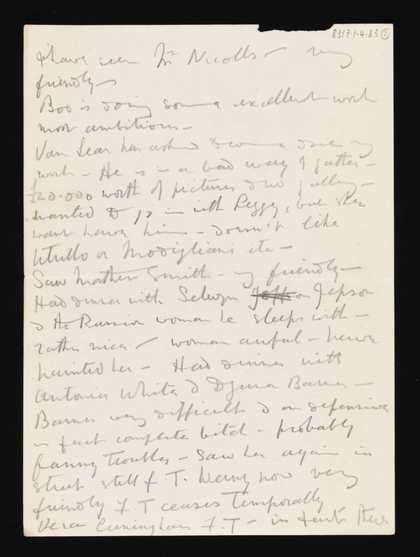 8317.1.4.83
I have seen Mr Nicolls – very
friendly –
Boo is doing some excellent work
most ambitious –
Van Lear has asked down & done my
work – He is in a bad way I gather –
£20.000 worth of pictures & no gallery –
wanted to go in with Peggy, but she
wont have him – doesn't like
Utrillo or Modiglianis etc –
Saw Matthew Smith – very friendly –
Had dinner with Selwyn Jepson
& the Russian woman he sleeps with –
rather nice – woman awful – have
painted her – Had dinner with
Antonia White & Djuna Barnes –
Barnes very difficult & on defensive
in fact complete bitch – probably
fanny troubles – Saw her again in
street still F.T. being now very
friendly F.T ceases temporally
Vera Cuningham F.T –